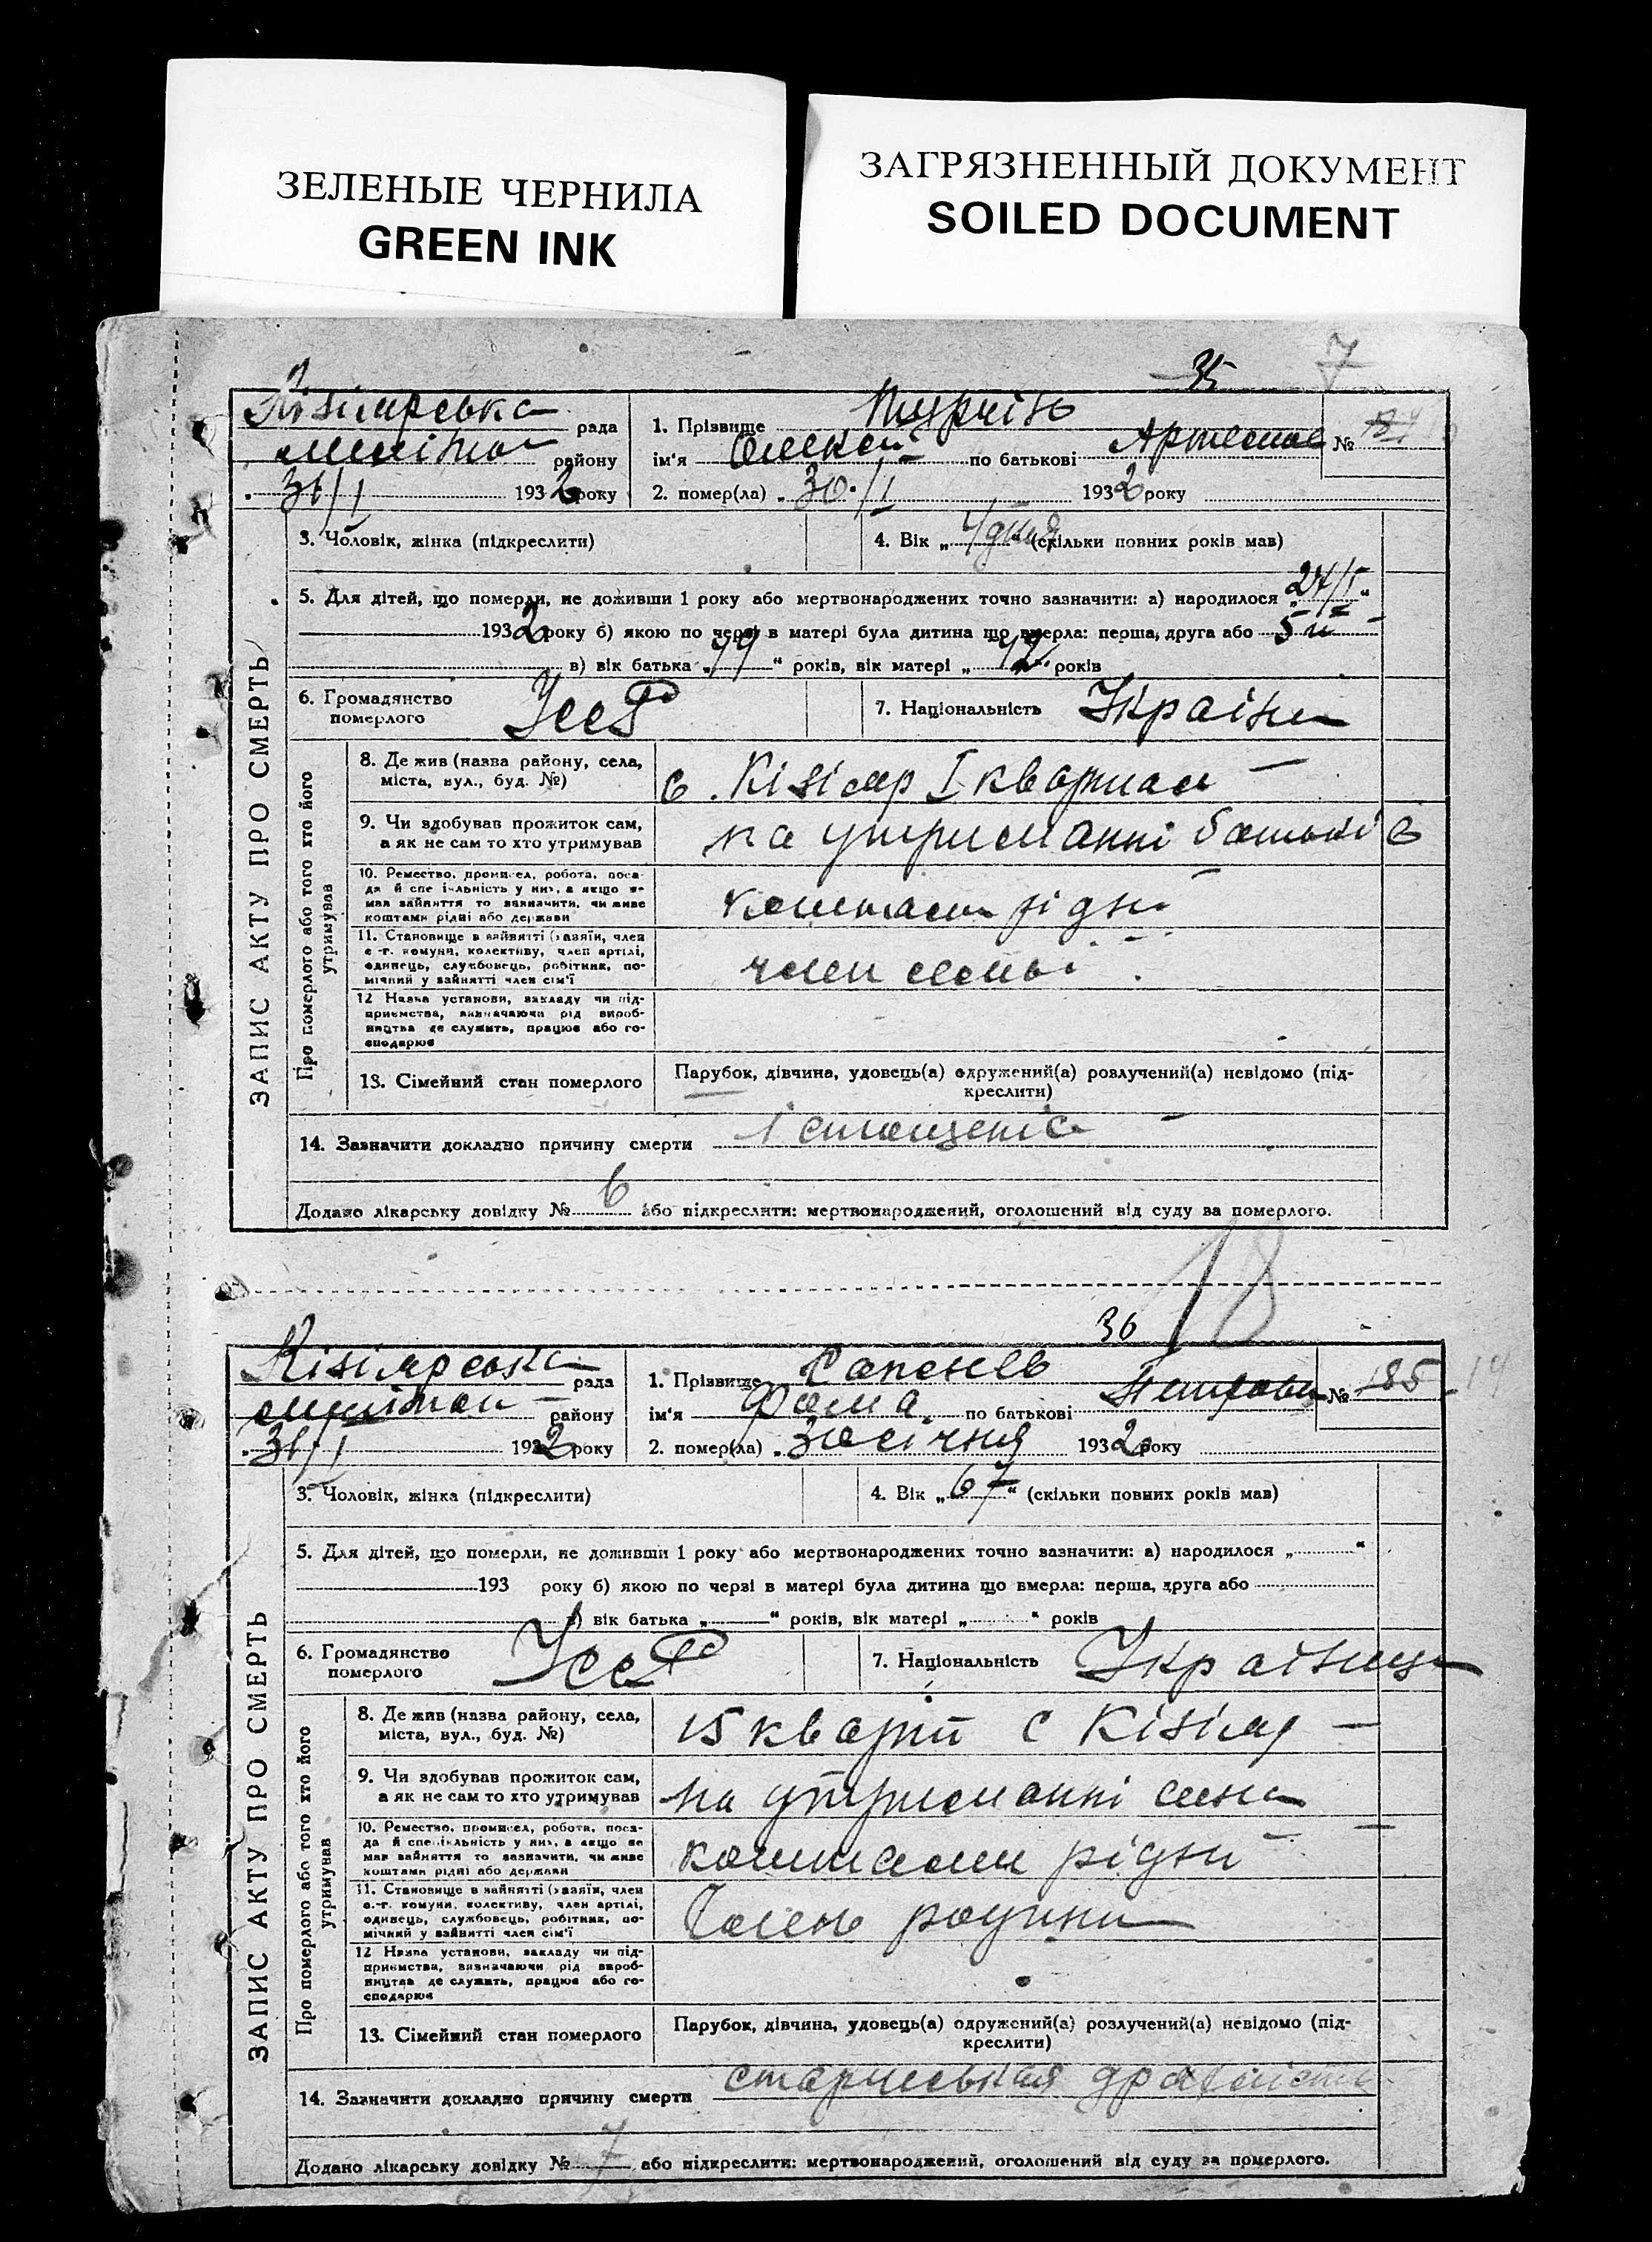 ЗЕЛЕНЫЕ ЧЕРНИЛА
GREEN INK
ЗАГРЯЗНЕННЫЙ ДОКУМЕНТ
SOILED DOCUMENT
35 7
ЗАПИС АКТУ ПРО СМЕРТЬ
Кізіярська рада
району
31/I 1932 року
1. Прізвище
ім'я Олексій по батькові Артемов №
2. помер(ла) „ 30/I 1932 року
3. Чоловік, жінка (підкреслити)
4. Вік „ 4/дня “ (скільки повних років мав)
5. Для дітей, що померли, не доживши 1 року або мертвонароджених точно зазначити: а) народилося „ 27/I “
1932 року б) якою по черзі в матері була дитина що вмерла: перша, друга або 5
в) вік батька „ 44 “ років, вік матері „ 42 “ років
6. Громадянство померлого УССР
7. Національність Україн
Про померлого або того хто його утримував
8. Де жив (назва району, села, міста, вул., буд. №)
с. Кізіяр I квартал
9. Чи здобував прожиток сам, а як не сам то хто утримував
на утриманні батьків
10. Ремество, промисел, робота, посада й спеціяльність у них, а якщо не мав зайняття то зазначити, чи живе коштами рідні або держави
коштами рідні
11. Становище в зайнятті (хазяїн, член с.-г. комуни, колективу, член артілі, одинець, службовець, робітник, помічний у зайнятті член сім'ї
член семьі
12 Назва установи, закладу чи підприємства, визначаючи рід виробництва де служить, працює або господарює
13. Сімейний стан померлого
Парубок, дівчина, удовець(а) одружений(а) розлучений(а) невідомо (підкреслити)
14. Зазначити докладно причину смерти істощеніє
Додано лікарську довідку № 6 або підкреслити: мертвонароджений, оголошений від суду за померлого.
18
36
ЗАПИС АКТУ ПРО СМЕРТЬ
Кізіярська рада
району
31/I 1932 року
1. Прізвище
ім'я Фома по батькові Петрови № 185 14
2. помер(ла) „ 30 січня 1932 року
3. Чоловік, жінка (підкреслити)
4. Вік „ 67 “ (скільки повних років мав)
5. Для дітей, що померли, не доживши 1 року або мертвонароджених точно зазначити: а) народилося „ “
193 року б) якою по черзі в матері була дитина що вмерла: перша, друга або
в) вік батька „ “ років, вік матері „ “ років
6. Громадянство померлого УССР
7. Національність Українец
Про померлого або того хто його утримував
8. Де жив (назва району, села, міста, вул., буд. №)
15 кварт с Кізіяр
9. Чи здобував прожиток сам, а як не сам то хто утримував
на утриманні сина
10. Ремество, промисел, робота, посада й спеціяльність у них, а якщо не мав зайняття то зазначити, чи живе коштами рідні або держави
коштами рідни
11. Становище в зайнятті (хазяїн, член с.-г. комуни, колективу, член артілі, одинець, службовець, робітник, помічний у зайнятті член сім'ї
Член родини
12 Назва установи, закладу чи підприємства, визначаючи рід виробництва де служить, працює або господарює
13. Сімейний стан померлого
Парубок, дівчина, удовець(а) одружений(а) розлучений(а) невідомо (підкреслити)
14. Зазначити докладно причину смерти
Додано лікарську довідку № 7 або підкреслити: мертвонароджений, оголошений від суду за померлого.